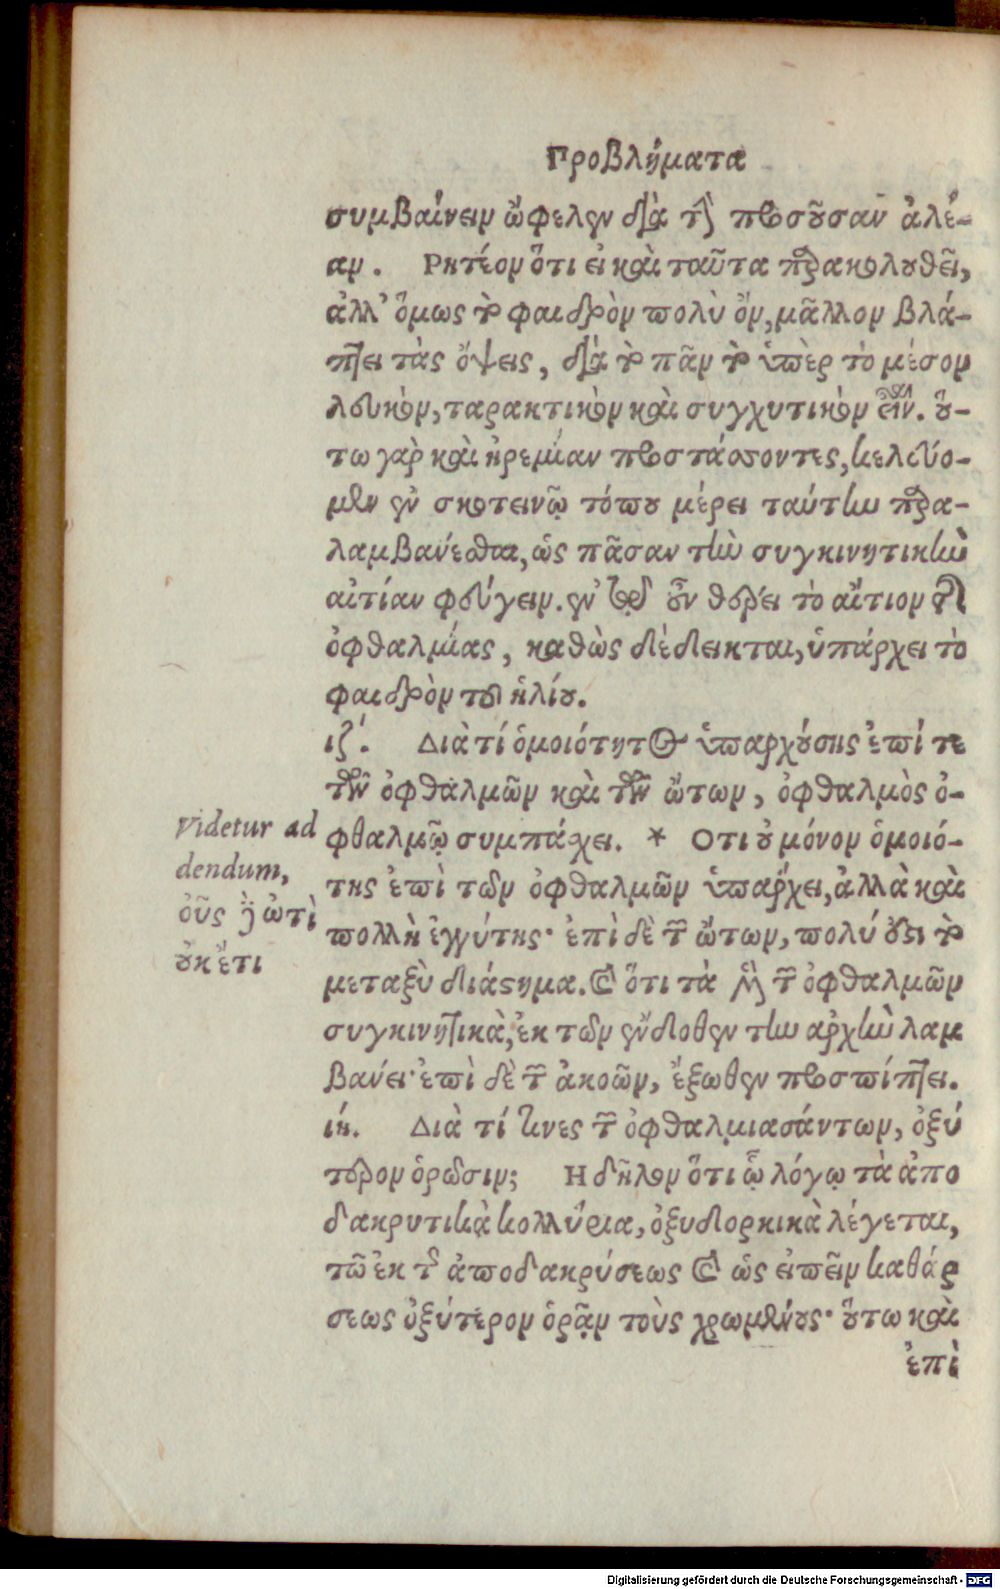 Προβλήματα
συμβαίνειν ὤφελεν διὰ τὴν προσοῦσαν ἀλέ-
αν. Ρητέον ὅτι εἰ καὶ ταῦτα παρακολουθεῖ,
ἀλλ' ὅμως τὸ φαιδρὸν πολὺ ὂν, μᾶλλον βλά-
πτει τὰς ὄψεις, διὰ τὸ πᾶν τὸ ὑπὲρ τὸ μέσον
λευκὸν, ταρακτικὸν καὶ συγχυτικὸν εἶναι. οὕ-
τω γὰρ καὶ ἠρεμίαν προστάσσοντες, κελεύο-
μεν ἐν σκοτεινῷ τόπου μέρει ταύτην παρα-
λαμβάνεσθαι, ὡς πᾶσαν τὴν συγκινητικὴν
αἰτίαν φεύγειν. ἐν οὖν θέρει τὸ αἴτιον τῆς
ὀφθαλμίας, καθὼς δέδεικται, ὑπάρχει τὸ
φαιδρὸν τοῦ ἡλίου.
ιζʹ. Διὰ τί ὁμοιότητος ὑπαρχούσης ἐπί τε
τῶν ὀφθαλμῶν καὶ τῶν ὤτων, ὀφθαλμὸς ὀ-
φθαλμῷ συμπάσχει. * Οτι οὐ μόνον ὁμοιό-
της ἐπὶ τῶν ὀφθαλμῶν ὑπάρχει, ἀλλὰ καὶ
πολλὴ ἐγγύτης· ἐπὶ δὲ τῶν ὤτων, πολύ ἐστι τὸ
μεταξὺ διάστημα. καὶ ὅτι τὰ μὲν τῶν ὀφθαλμῶν
συγκινητικὰ, ἐκ τῶν ἔνδοθεν τὴν ἀρχὴν λαμ
βάνει· ἐπὶ δὲ τῶν ἀκοῶν, ἔξωθεν προσπίπτει.
ιή. Διὰ τί τινες τῶν ὀφθαλμιασάντων, ὀξύ
τερον ὁρῶσιν; Η δῆλον ὅτι ᾧ λόγῳ τὰ ἀπο
δακρυτικὰ κολλύρια, ὀξυδιορκικὰ λέγεται,
τῷ ἐκ τῆς ἀποδακρύσεως καὶ ὡς εἰπεῖν καθάρ
σεως ὀξύτερον ὁρᾷν τοὺς χρωμένους· οὕτω καὶ
ἐπὶ
Videtur ad
dendum,
οὖς δὲ ὠτὶ
οὐκέτι
Digitalisierung gefördert durch die Deutsche Forschungsgemeinschaft - DFG